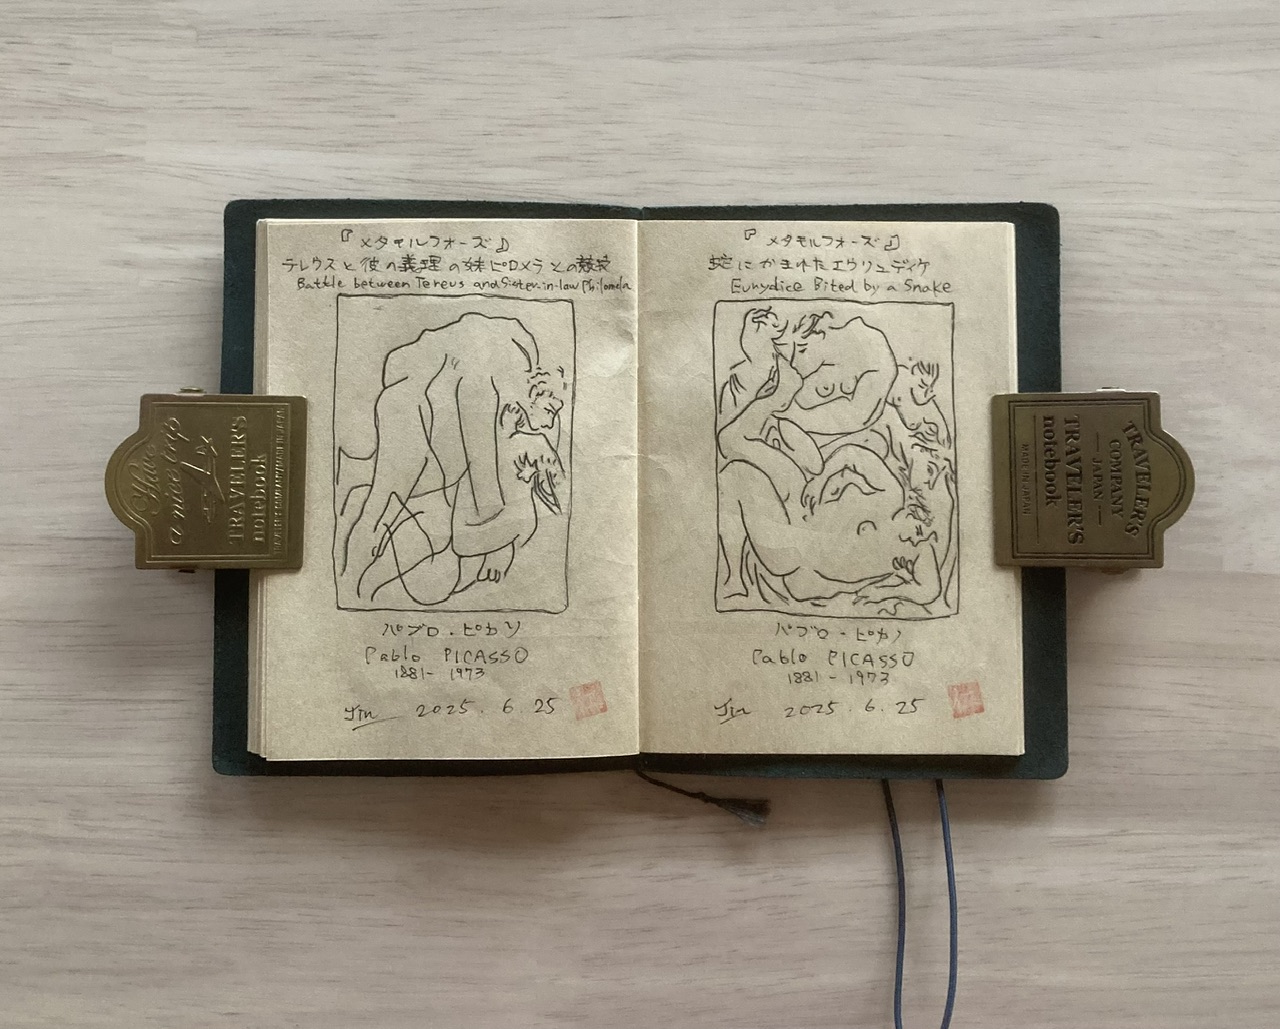 『メタモルフォーズ』
テレウスと彼の義理の妹ピロメラとの
Battle between Tereus and Sister-in-law Philomela
パブロ・ピカソ
Pablo PICASSO
1881- 1973
Jin 2025. 6. 25
『メタモルフォーズ』
蛇にかまれたエウリュディケ
Eurydice Bited by a Snake
パブロ・ピカソ
Pablo PICASSO
1881 - 1973
Jin 2025. 6. 25
Have
a nice trip
TRAVELER'S
notebook
TRAVELER'S
COMPANY
JAPAN
TRAVELER'S
notebook
MADE IN JAPAN